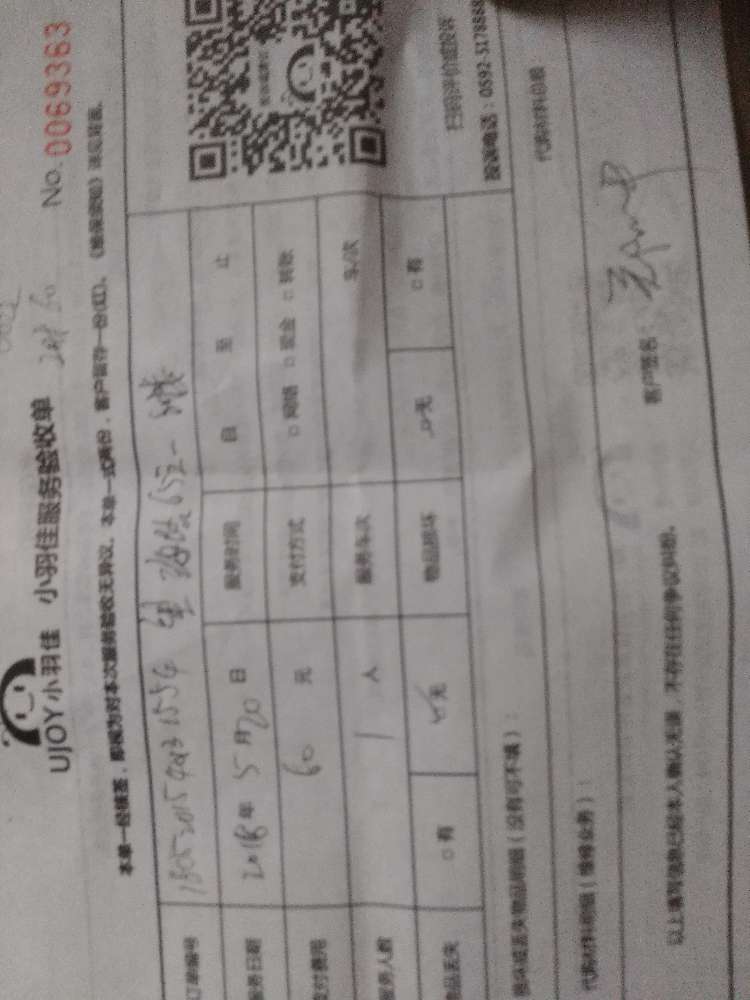 UJOY小羽佳 小羽佳服务验收单 No. 0069363
本单一经签签，即视为对本次服务验收无异议。本单一式两份，客户留存一份(红)。《维保须知》详见背面。
订单编号
服务日期 2018年 5月20日 服务时间 自 至 止
支付费用 60 元 支付方式 □ 网络 □ 现金 □ 转账
服务人数 1 人 服务车次 车/次
物品丢失 □ 有 无 物品损坏 □ 无 □ 有
扫码评价或投诉
投诉电话：0592-5178888
损坏或丢失物品明细（没有可不填）：
代购材料明细（维修业务）： 代购材料总额
以上填写信息已经本人确认无误，不存在任何争议纠纷。 客户签名：